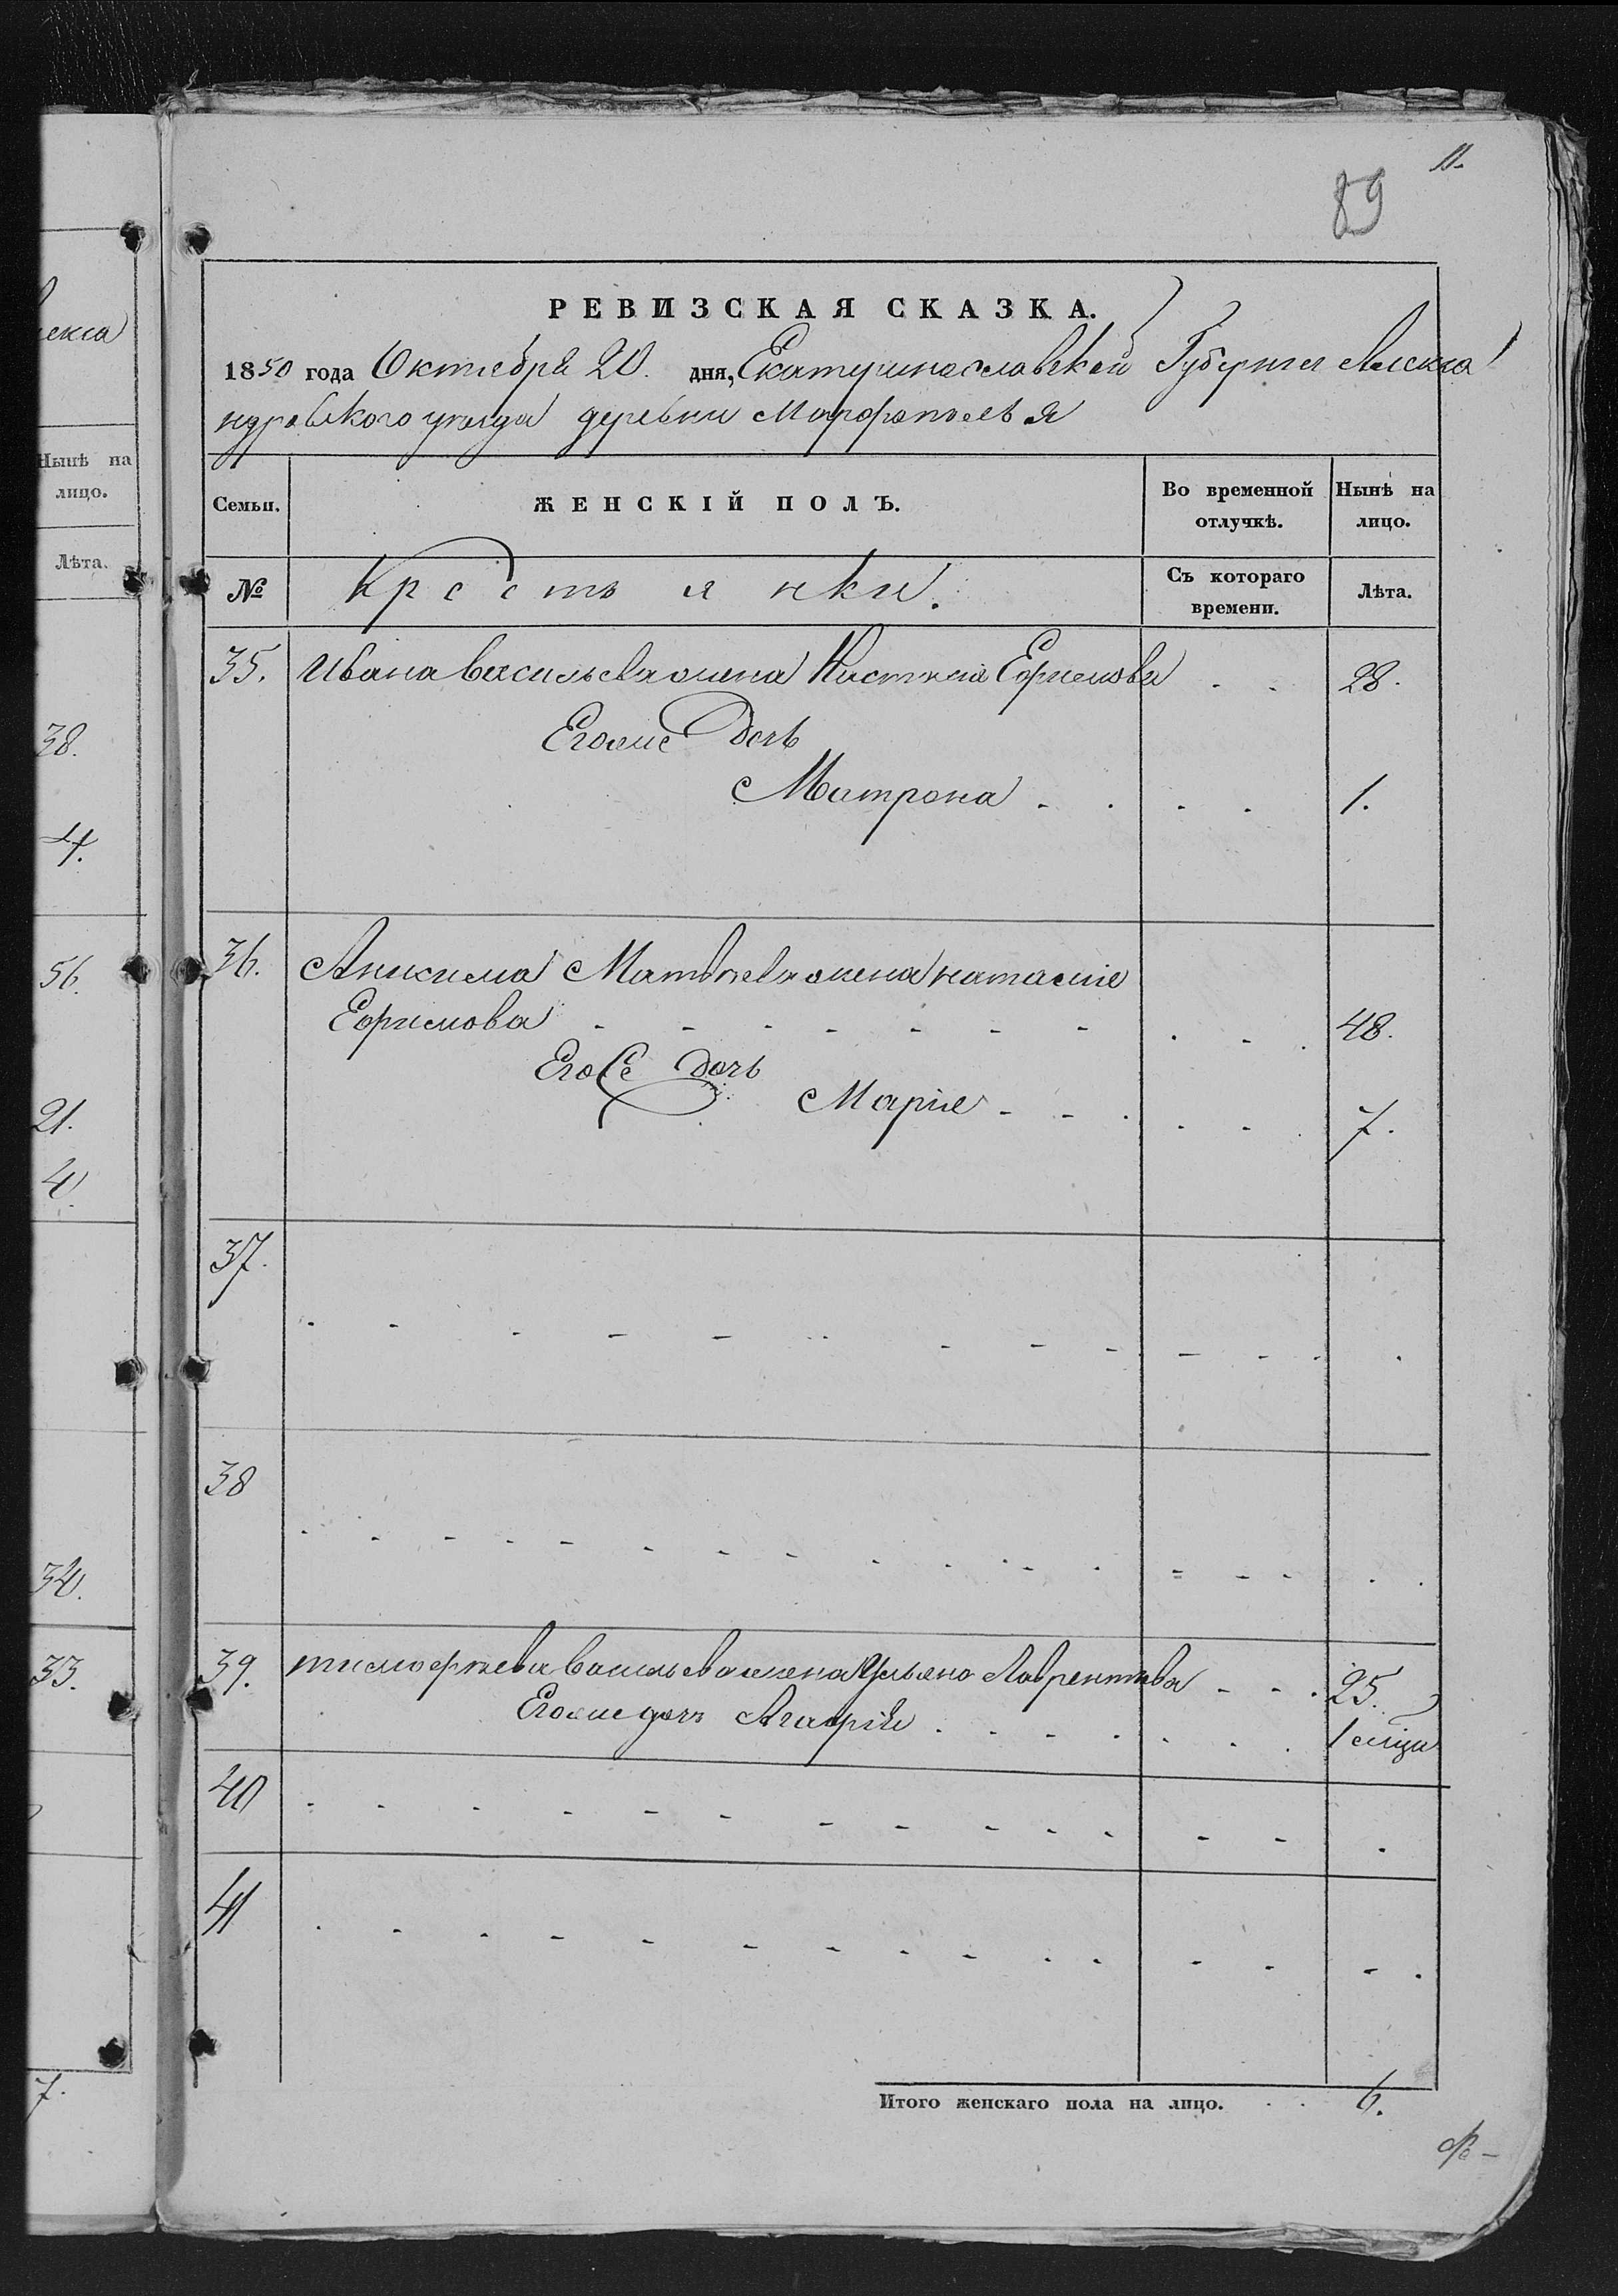 11.
89
РЕВИЗСКАЯ СКАЗКА.
1850 года Октября 20. дня, Екатеринославской Губернии Алекса
ндровского уезда деревни
Семьи. ЖЕНСКІЙ ПОЛЪ. Во временной отлучкѣ. Нынѣ на лицо.
№ Крестьянки. Съ котораго времени. Лѣта.
35. Ивана Васильева жена Настасия Ефимова 28.
Егоже Дочь
Матрона 1.
36. Аникима Матвѣева жена наталие
Ефимова 48.
Его Дочь
Марие 7.
37.
38
39. тимофѣева Васильева жена Ульяна Лаврентева 25.
Егоже дочь Агафия 1 мѣця
40
41
Итого женскаго пола на лицо. 6.
екса
Нынѣ на
лицо.
Лѣта.
38.
4.
56.
21.
4.
34.
33.
7.